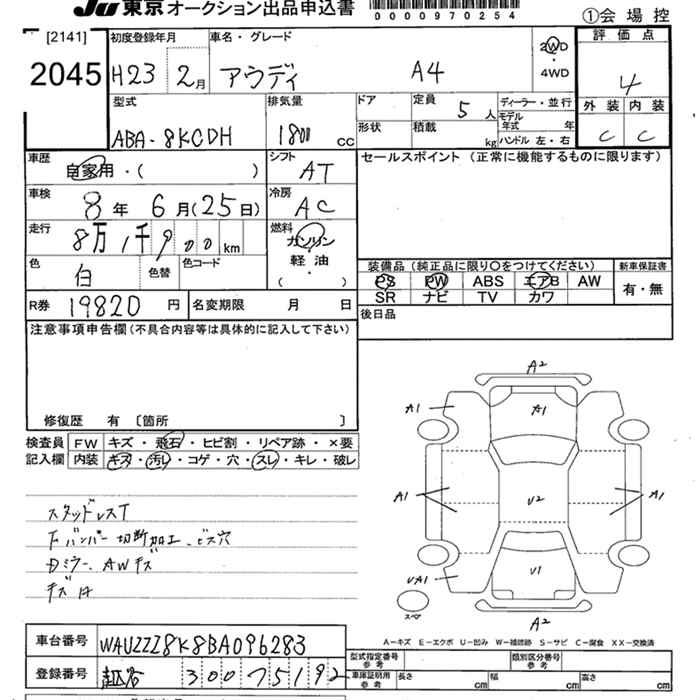 JU 東京 オークション出品申込書
0000970254
①会場控
[2141]
2045
初度登録年月
H23 2月
車名・グレード
アウディ A4
2WD
・
4WD
評価点
4
外装 内装
C C
型式
ABA-8KCDH
排気量
1800 cc
ドア
形状
定員
5人
積載
kg
ディーラー・並行
モデル
年式 年
ハンドル 左・右
車歴
自家用・( )
シフト
AT
セールスポイント (正常に機能するものに限ります)
車検
8年 6月(25日)
冷房
AC
走行
8万1千900km
燃料
ガソリン
軽・油
( ・ )
色
白
色替
色コード
装備品 (純正品に限り○をつけてください)
新車保証書
PS PW ABS エアB AW
SR ナビ TV カワ
有・無
R券 19820円
名変期限 月 日
後日品
注意事項申告欄 (不具合内容等は具体的に記入して下さい)
修復歴 有 〔箇所 〕
検査員
記入欄
FW キズ・飛石・ヒビ割・リペア跡・×要
内装 キズ・汚レ・コゲ・穴・スレ・キレ・破レ
スタッドレスT
Fバンパー切断加工、ビス穴
Dミラー、AWキズ
A2
A1 A1
A1 U2 A1
UA1 U1
スペア
A2
A-キズ E-エクボ U-凹み W-補修跡 S-サビ C-腐食 XX-交換済
車台番号 WAUZZZ8K8BA096283
登録番号 300 7519
型式指定番号
参考
類別区分番号
参考
車庫証明用
参考
長さ cm
幅 cm
高さ cm